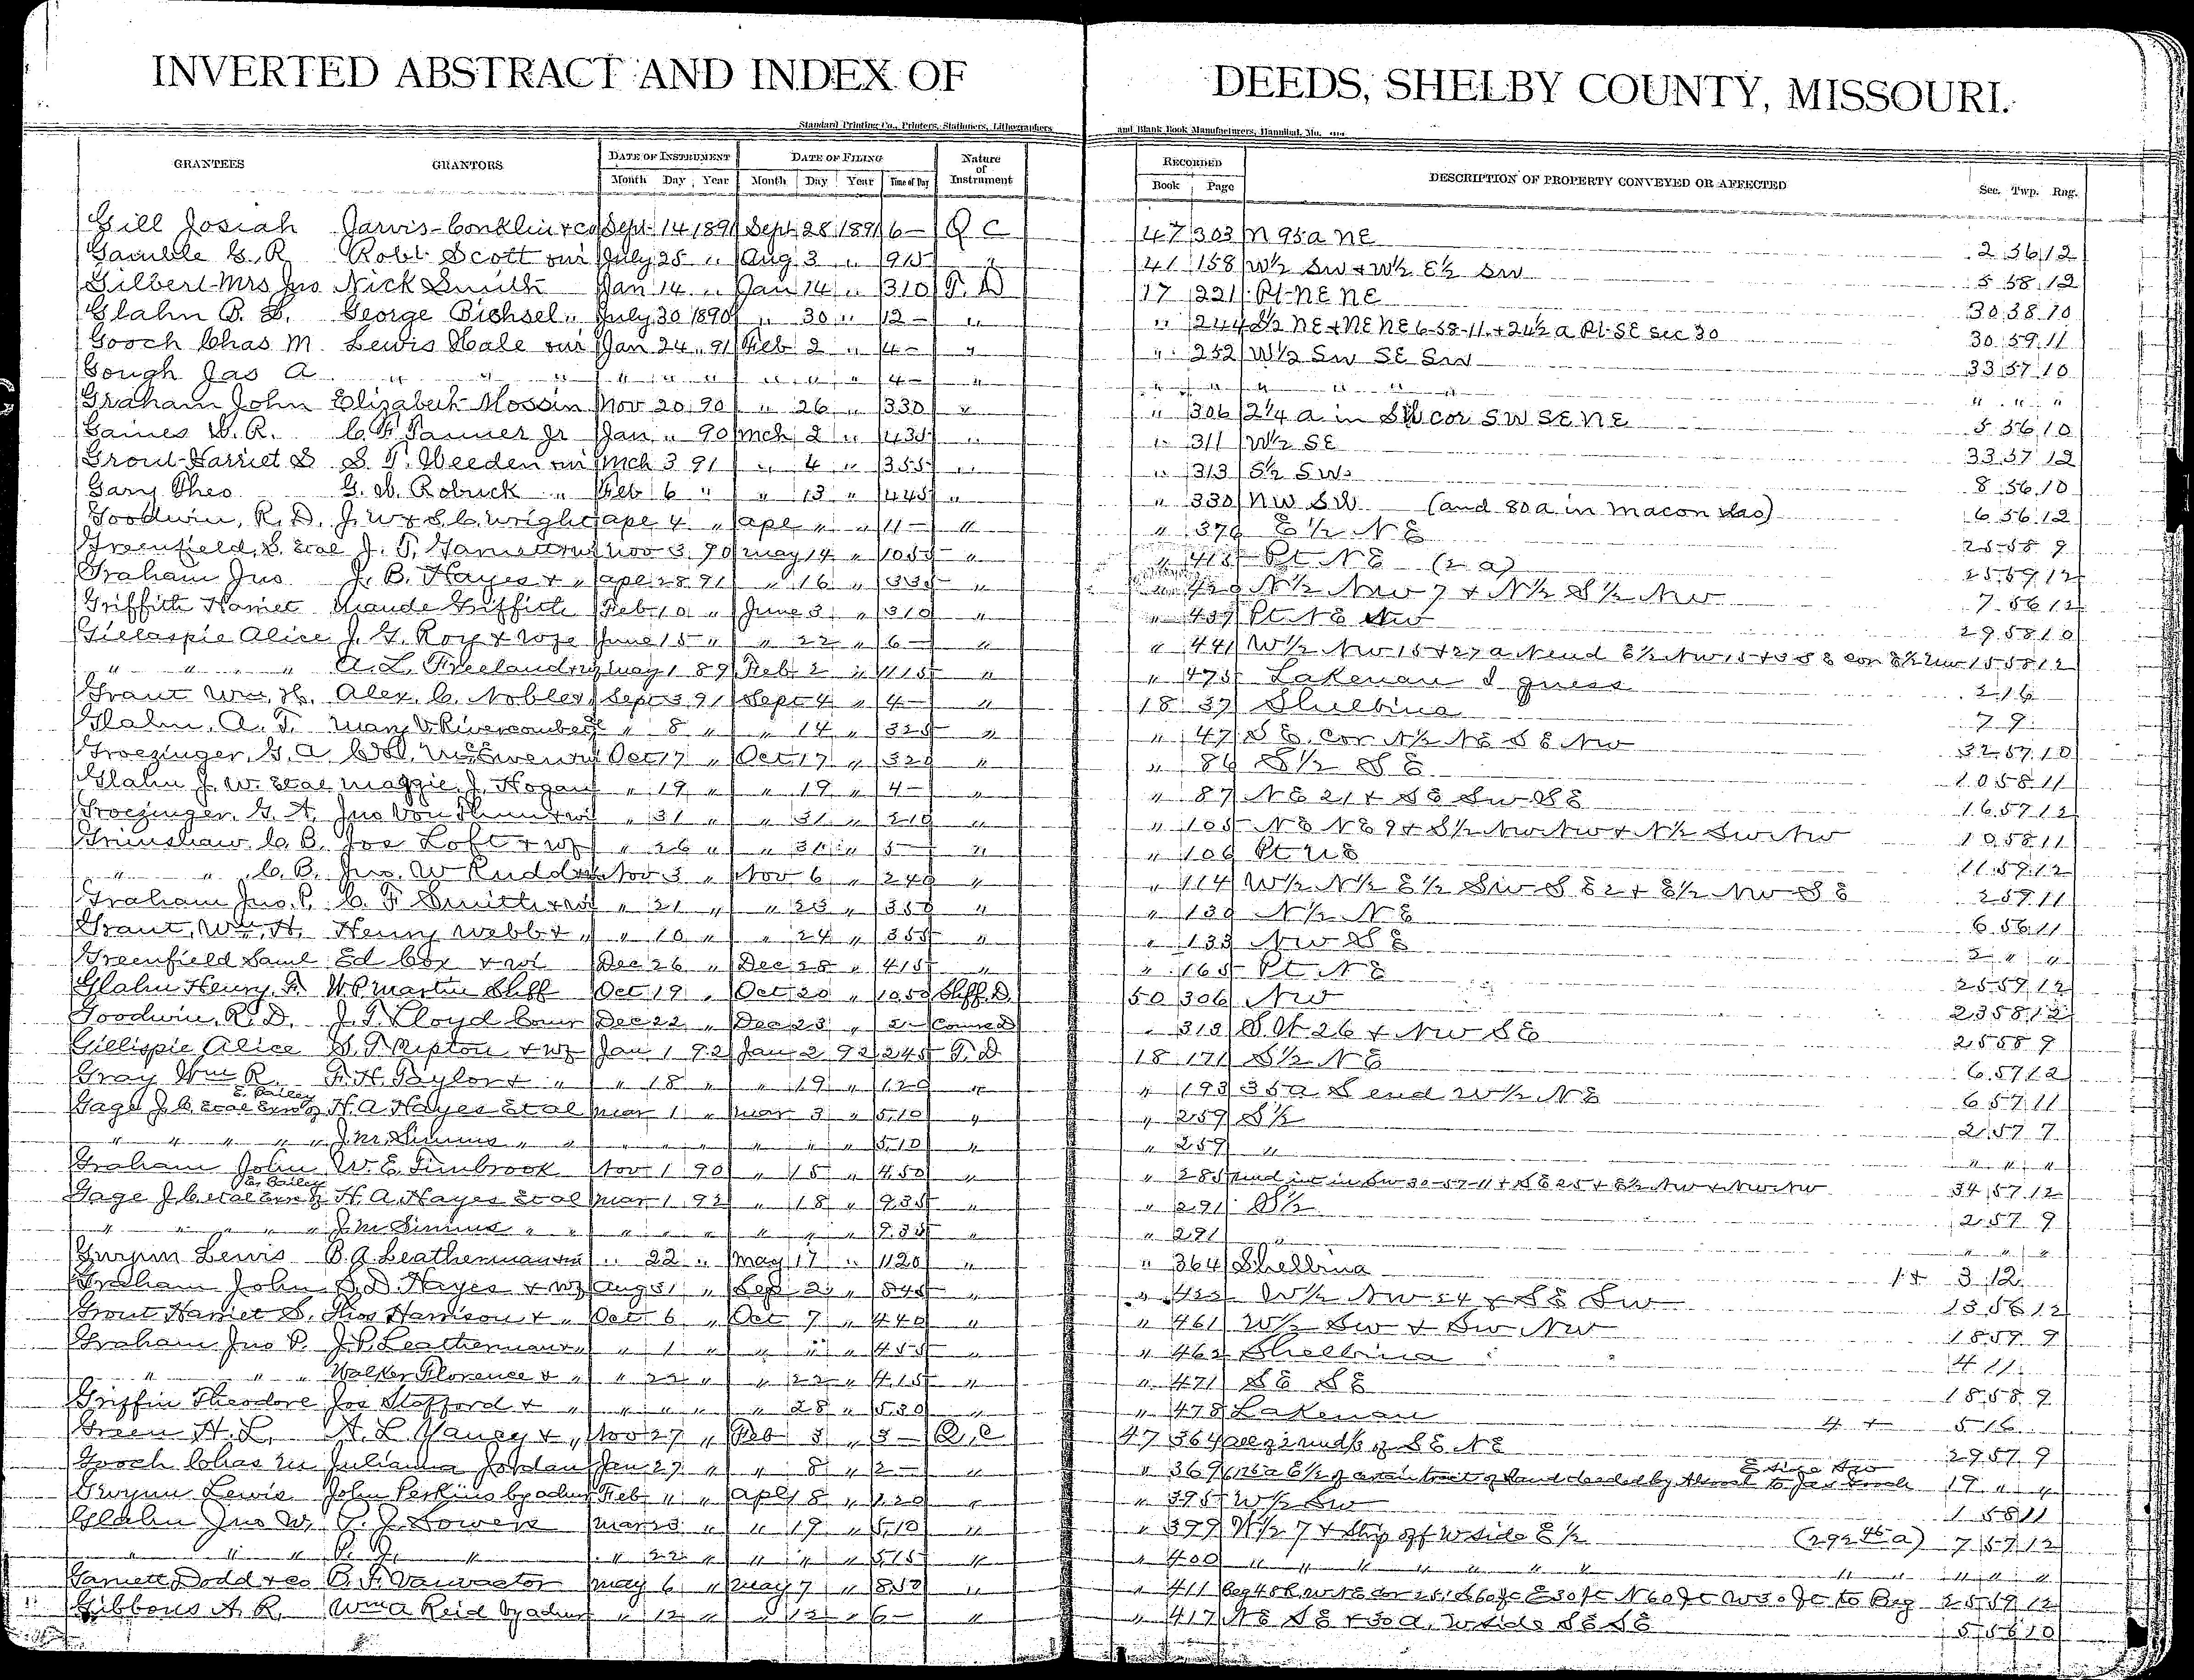 INVERTED ABSTRACT AND INDEX OF DEEDS, SHELBY COUNTY, MISSOURI.
Standard Printing Co., Printers, Stationers, Lithographers and Blank Book Manufacturers, Hannibal, Mo.
GRANTEES GRANTORS DATE OF INSTRUMENT DATE OF FILING Nature of Instrument RECORDED DESCRIPTION OF PROPERTY CONVEYED OR AFFECTED Sec. Twp. Rng.
Month Day Year Month Day Year Time of Day Book Page
Gill Josiah Jarvis-Conklin & Co Sept 14 1891 Sept 28 1891 6- Q C 47 303 N 95a NE 2 56 12
Gamble G. R. Robt Scott wi July 25 " Aug 3 " 915 " 41 158 W½ SW & W½ E½ SW 5 58 12
Gilbert Mrs Jno Nick Smith Jan 14 " Jan 14 " 310 T. D 17 221 Pt NE NE 30 38 10
Glahn B. George Bichsel " July 30 1890 " 30 " 12- " " 244 S½ NE & NE NE 6-58-11 & 24½ a Pt SE Sec 30 30 59 11
Gooch Chas M. Lewis Hale wi Jan 24 " 91 Feb 2 " 4- " " 252 W½ SW SE SW 33 57 10
Gough Jas A " " " " " " " " " 4- " " " " " " " " "
Graham John Elizabeth Mossin Nov 20 90 " 26 " 330 " " 306 2¼ a in SW cor SW SE NE 5 56 10
Gaines W. R. C. F. Tanner Jr Jan " 90 Mch 2 " 435 " " 311 W½ SE 33 57 12
Grout Harriet S S. T. Weeden wi Mch 3 91 " 4 " 355 " " 313 S½ SW 8 56 10
Gary Theo G. W. Robuck " Feb 6 " " 13 " 445 " " 330 NW SW (and 80a in Macon Co) 6 56 12
Goodwin, R. D. J. W & S. C. Wright Apl 4 " Apl " " 11- " " 376 E½ NE 25 58 9
Greenfield, S. Etal J. T. Garnett Nov 3 90 May 14 " 1055 " " 415 Pt NE (2 a) 25 59 12
Graham Jno J. B. Hayes & " Apl 28 91 " 16 " 335 " " 420 N½ NW 7 & N½ S½ NW 7 56 12
Griffith Harriet Maude Griffith Feb 10 " June 3 " 310 " " 437 Pt NE NW 29 58 10
Gillaspie Alice J. G. Roy & wfe June 15 " " 22 " 6- " " 441 W½ NW 15 & 27 a N end E½ NW 15 & SE cor E½ NW 15 58 12
" " " " A. L. Freeland May 1 89 Feb 2 " 1115 " " 475 Lakenan I guess 2 16
Grant Wm. H. Alex. C. Nobles Sept 3 91 Sept 4 " 4- " 18 37 Shelbina 7 9
Glahn, A. T. Mary V Rivercomb " 8 " " 14 " 325 " " 47 SE Cor N½ NE SE NW 32 57 10
Groezinger, G. A. McEwen Oct 17 " Oct 17 " 320 " " 86 S½ SE 10 58 11
Glahn J. W. Etal Maggie J. Hogan " 19 " " 19 " 4- " " 87 NE 21 & SE SW SE 16 57 12
Groezinger, G. A. Jno Von Thun & wi " 31 " " 31 " 210 " " 105 NE NE 9 & S½ NW NW & N½ SW NW 10 58 11
Grimshaw C. B. Joe Loft & wf " 26 " " 31 " 5- " " 106 Pt NE 11 59 12
" " C. B. Jno. W Rudd Nov 3 " Nov 6 " 240 " " 114 W½ N½ E½ SW SE 2 & E½ NW SE 2 59 11
Graham Jno. P. C. F Smith & wi " 21 " " 23 " 350 " " 130 N½ NE 6 56 11
Grant, Wm. H. Henry Webb & " " 10 " " 24 " 355 " " 133 NW SE 2 " "
Greenfield Saml Ed Cox & wi Dec 26 " Dec 28 " 415 " " 165 Pt NE 25 59 12
Glahn Henry. F. W. P. Martin Shff Oct 19 " Oct 20 " 1050 Shff. D. 50 306 NW 23 58 12
Goodwin, R. D. J. T. Lloyd Comr Dec 22 " Dec 23 " 2- Comr D " 313 SW 26 & NW SE 25 58 9
Gillispie Alice S. T. Ripton & wf Jan 1 92 Jan 2 92 245 T. D 18 171 S½ NE 6 57 12
Gray Wm R. F. H. Taylor & " " 18 " " 19 " 120 " " 193 35 a S end W½ NE 6 57 11
Gage J. C. Etal Exr of E. Bailey H. A. Hayes Etal Mar 1 " Mar 3 " 510 " " 259 S½ 21 57 7
" " " " " J. M. Simms " " " " " " " " 510 " 259 " " " "
Graham John W. E. Timbrook Nov 1 90 " 15 " 450 " " 285 und int in SW 30-57-11 & SE 25 & E½ NW & NW NW 34 57 12
Gage J. C. etal Exr of E. Bailey H. A. Hayes Etal Mar 1 92 " 18 " 935 " " 291 S½ 2 57 9
" " " " " J. M Simms " " " " " " " " 935 " " 291 " " " "
Gwynn Lewis B. A. Leatherman & wi " 22 " May 17 " 1120 " " 364 Shelbina 1 & 3 12
Graham John S. D. Hayes & wf Aug 31 " Sep 2 " 845 " " 422 W½ NW 24 & SE SW 13 56 12
Grout Harriet S. Thos Harrison & " Oct 6 " Oct 7 " 440 " " 461 W½ SW & SW NW 18 59 9
Graham Jno P. J. P. Leatherman & " " 1 " " " " 455 " " 462 Shelbina 4 11
" " " Walker Florence & " " 22 " " 22 " 415 " " 471 SE SE 18 58 9
Griffin Theodore Jos Stafford & " " " " " 28 " 530 " " 478 Lakenan 4 & 5 16
Green H. L. A. L Yancy & " Nov 27 " Feb 3 " 3- Q. C 47 364 SE NE 29 57 9
Gooch Chas M Julianna Jordan Jan 27 " " 8 " 2- " " 369 E½ of a certain tract of land deeded by to Jas Gooch 19 " "
Gwynn Lewis John Perkins by admr Feb " " Apl 8 " 120 " " 395 W½ SW 1 58 11
Glahn Jno W. P. J. Sowers Mar 23 " " 19 " 510 " " 399 W½ 7 & Strip off W side E½ (292 46 a) 7 57 12
" " " P. J. " " 22 " " " " 515 " " 400 " " " " " " " " " " "
Garnett Dodd & Co B. F. Vanvactor May 6 " May 7 " 850 " " 411 Beg 48 R. W. NE cor 25, S 60 ft E 30 ft N 60 ft W 30 ft to Beg 25 59 12
Gibbons A. R. Wm A Reid by admr " 12 " " 12 " 6- " " 417 NE SE & 30 a. W side SE SE 5 56 10